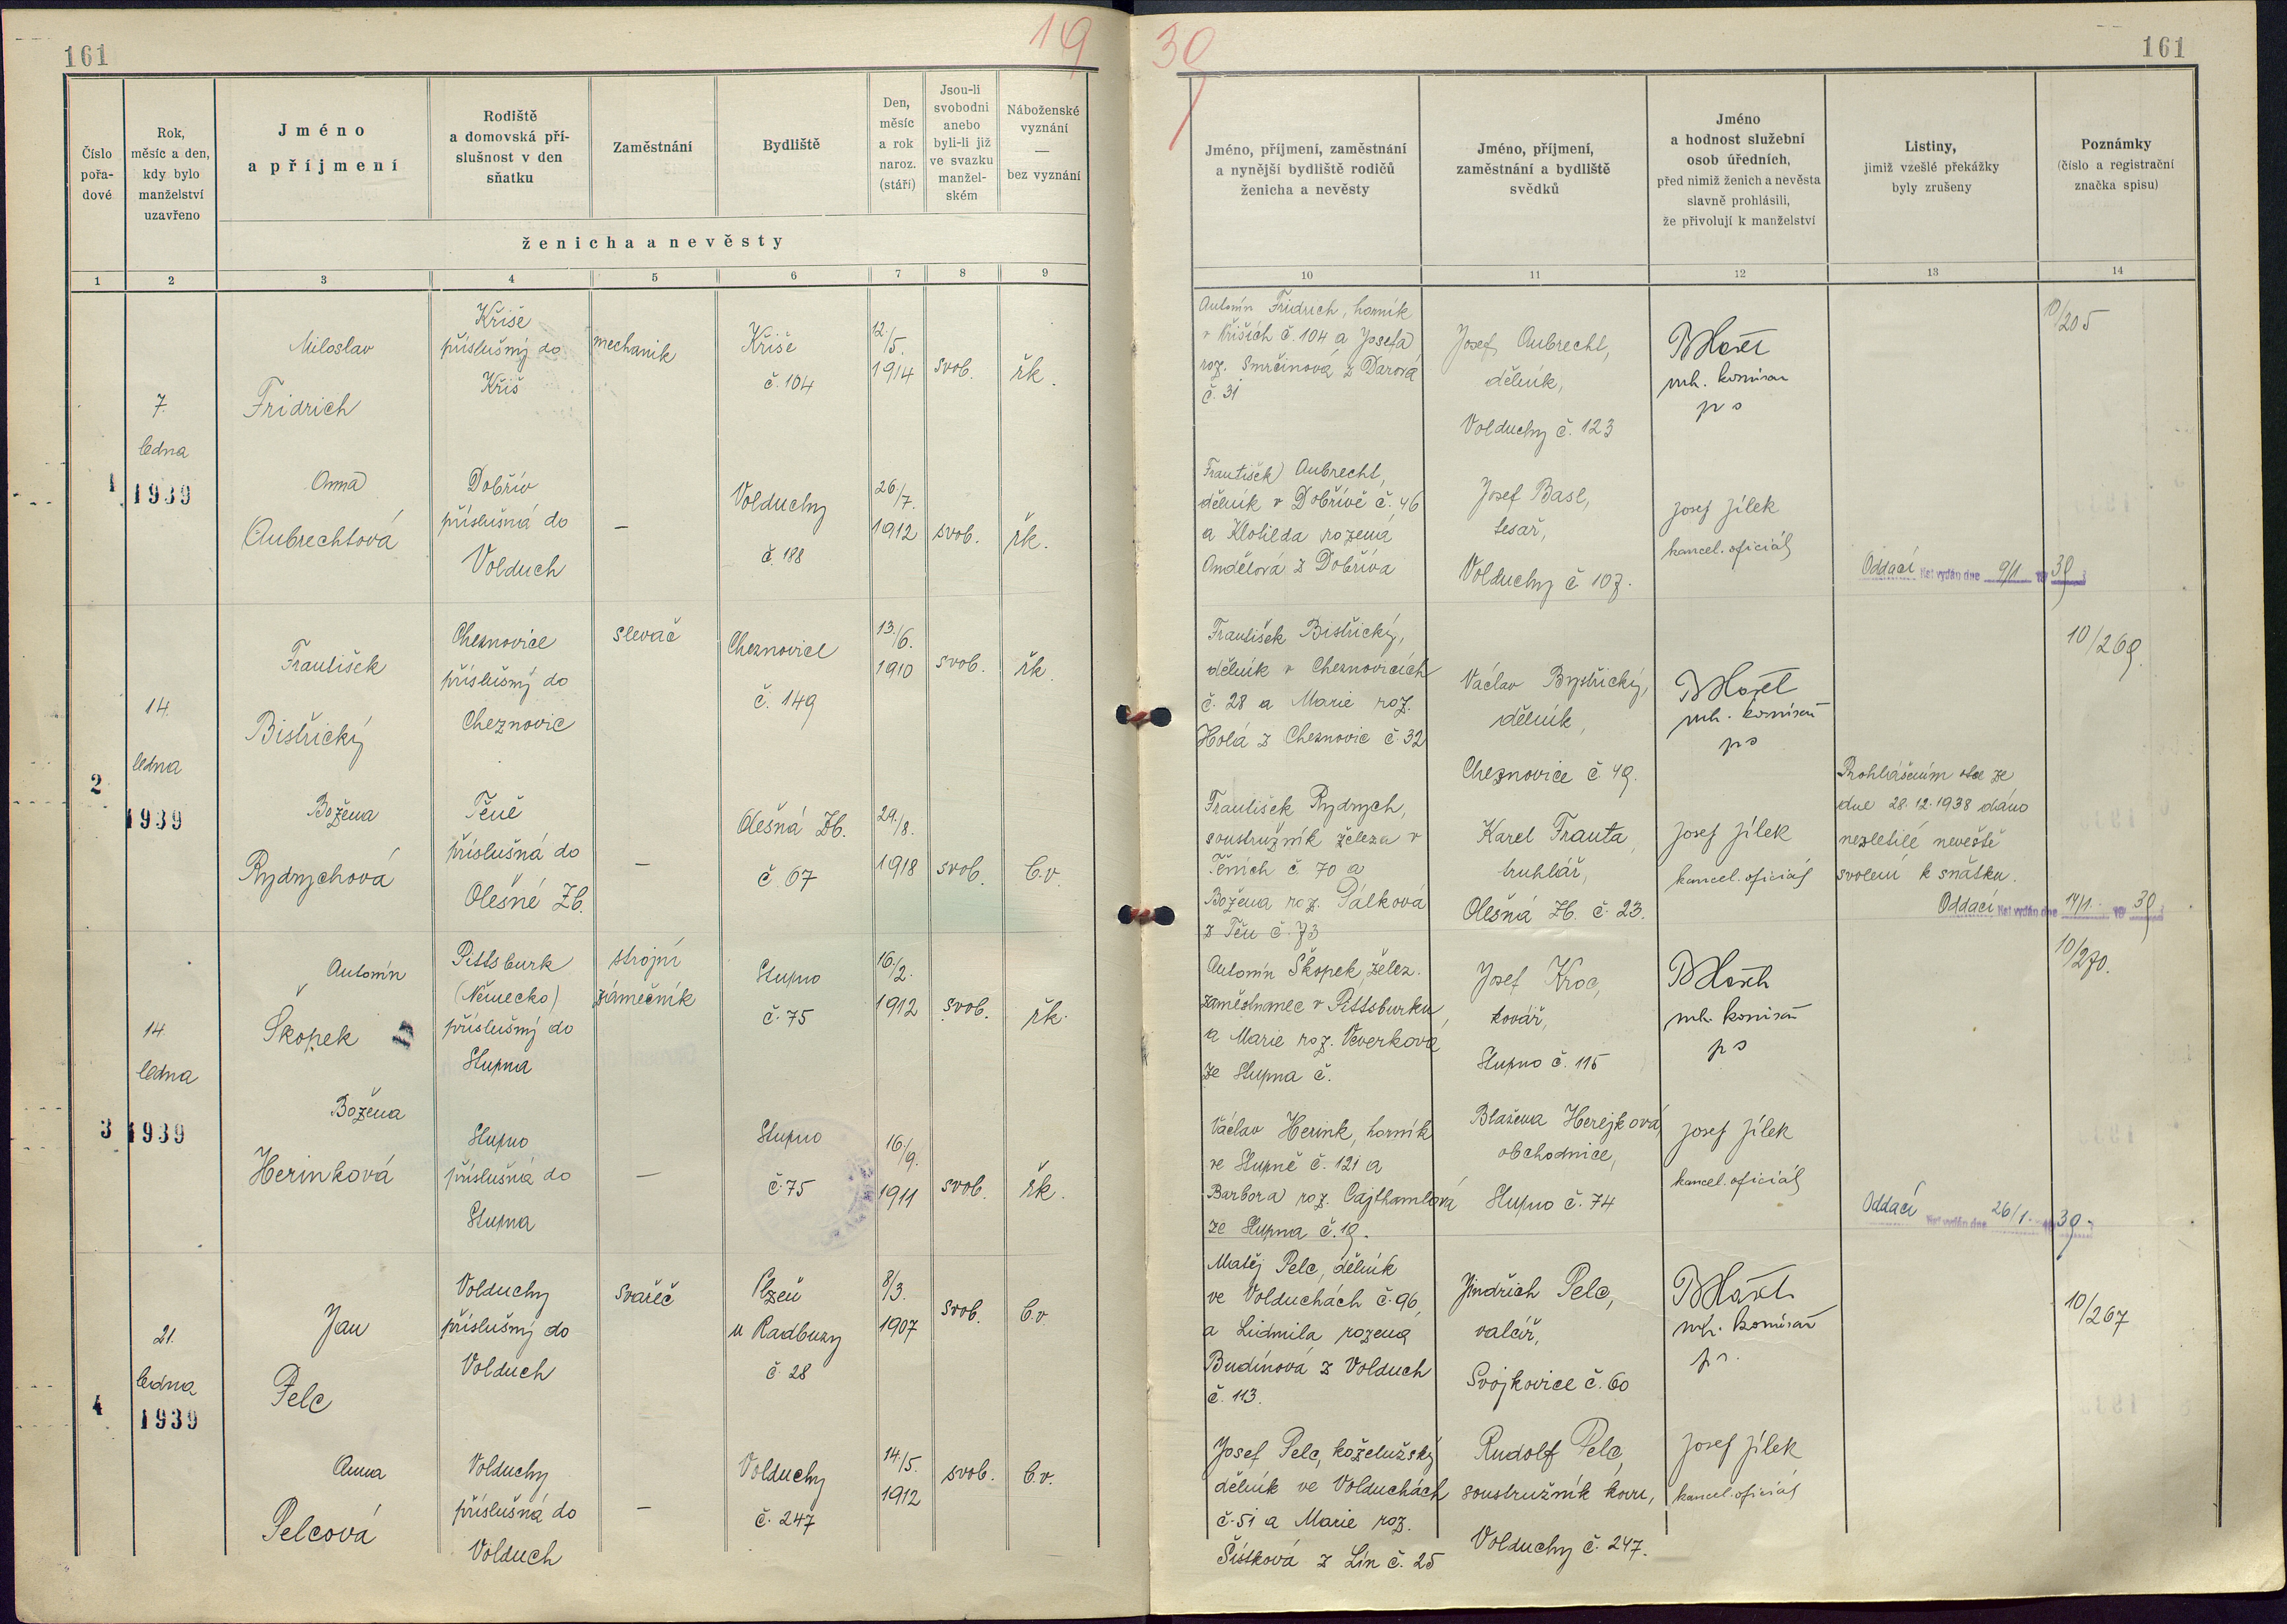 161
19
Číslo
pořa-
dové
Rok,
měsíc a den,
kdy bylo
manželství
uzavřeno
Jméno
a příjmení
Rodiště
a domovská pří-
slušnost v den
sňatku
Zaměstnání
Bydliště
Den,
měsíc
a rok
naroz.
(stáří)
Jsou-li
svobodni
anebo
byli-li již
ve svazku
manžel-
ském
Náboženské
vyznání
—
bez vyznání
ženicha a nevěsty
1 2 3 4 5 6 7 8 9
1
7.
ledna
1939
Miloslav
Fridrich
Kříše
příslušný do
Kříš
mechanik
Kříše
č. 104
12./5.
1914
svob.
řk.
Anna
Aubrechtová
Dobřív
příslušná do
Volduch
—
Volduchy
č. 188
26/7.
1912
svob.
řk.
2
14.
ledna
1939
František
Bistřický
Cheznovice
příslušný do
Cheznovic
slevač
Cheznovice
č. 149
13./6.
1910
svob.
řk.
Božena
Rydrychová
Těně
příslušná do
Olešné Zb.
—
Olešná Zb.
č. 67
29./8.
1918
svob.
b.v.
3
14.
ledna
1939
Antonín
Škopek
Pittsburk
(Německo)
příslušný do
Stupna
strojní
zámečník
Stupno
č. 75
16/2.
1912
svob.
řk.
Božena
Herinková
Stupno
příslušná do
Stupna
—
Stupno
č. 75
16/9.
1911
svob.
řk.
4
21.
ledna
1939
Jan
Pelc
Volduchy
příslušný do
Volduch
svářeč
Plzeň
u Radbuzy
č. 28
8/3.
1907
svob.
b.v.
Anna
Pelcová
Volduchy
příslušná do
Volduch
—
Volduchy
č. 247
14/5.
1912
svob.
b.v.
30
161
Jméno, příjmení, zaměstnání
a nynější bydliště rodičů
ženicha a nevěsty
Jméno, příjmení,
zaměstnání a bydliště
svědků
Jméno
a hodnost služební
osob úředních,
před nimiž ženich a nevěsta
slavně prohlásili,
že přivolují k manželství
Listiny,
jimiž vzešlé překážky
byly zrušeny
Poznámky
(číslo a registrační
značka spisu)
10 11 12 13 14
Antonín Fridrich, horník
v Kříších č. 104 a Josefa
roz. Smrčinová z Darová
č. 31
Josef Aubrecht,
dělník,
Volduchy č. 123
rh. komisař
ps
10/205
František Aubrecht,
dělník v Dobřívě č. 46
a Klotilda rozená
Andělová z Dobříva
Josef Basl,
tesař,
Volduchy č. 107.
Josef Jílek
kancel. oficiál
Oddací list vydán dne 9/1. 19 39
František Bistřický,
dělník v Cheznovicích
č. 28 a Marie roz.
Holá z Cheznovic č. 32
Václav Bystřický,
dělník,
Cheznovice č. 49.
rh. komisař
ps
10/269.
František Rydrych,
soustružník železa v
Těních č. 70 a
Božena roz. Pálková
z Těň č. 73
Karel Franta,
truhlář,
Olešná Zb. č. 23.
Josef Jílek
kancel. oficiál
Prohlášením otce ze
dne 28.12.1938 dáno
nezletilé nevěstě
svolení k sňatku.
Oddací list vydán dne 14/1. 19 39
Antonín Škopek, želez.
zaměstnanec v Pittsburku,
a Marie roz. Veverková
ze Stupna č.
Josef Kroc,
kovář,
Stupno č. 115
rh. komisař
ps
10/270.
Václav Herink, horník
ve Stupně č. 121 a
Barbora roz. Cajthamlová
ze Stupna č. 19.
Blažena Herejková,
obchodnice,
Stupno č. 74
Josef Jílek
kancel. oficiál
Oddací list vydán dne 26/1. 19 39.
Matěj Pelc, dělník
ve Volduchách č. 96,
a Ludmila rozená
Budínová z Volduch
č. 113.
Jindřich Pelc,
valcíř,
Svojkovice č. 60
rh. komisař
ps.
10/267
Josef Pelc, koželužský
dělník ve Volduchách
č. 51 a Marie roz.
Šístková z Lín č. 25
Rudolf Pelc,
soustružník kovu,
Volduchy č. 247.
Josef Jílek
kancel. oficiál